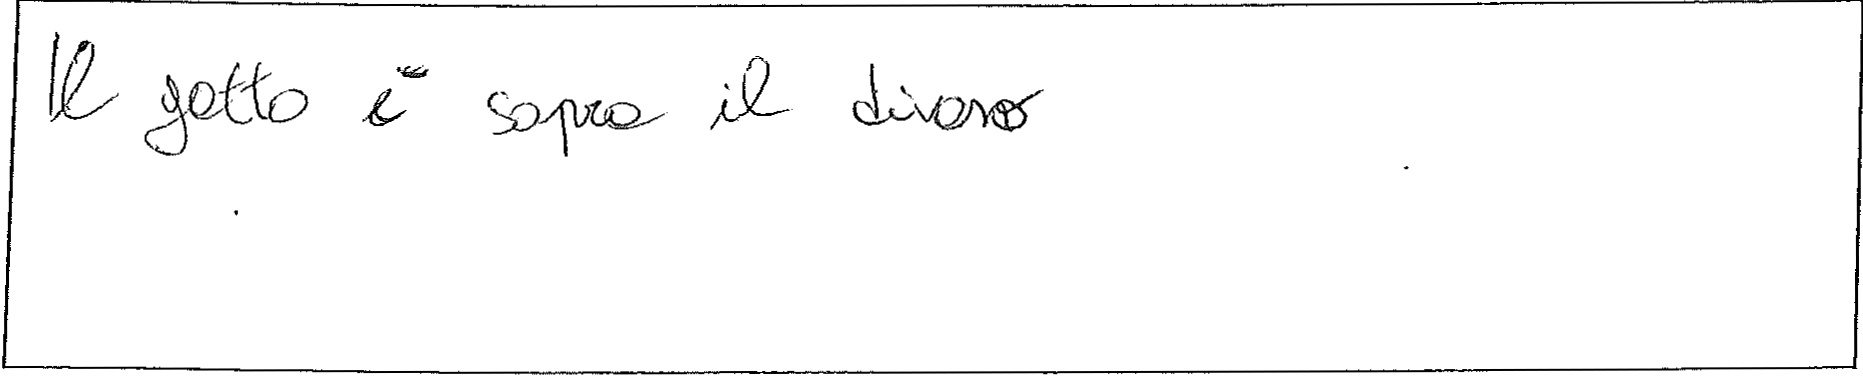 Il gatto è sopra il divano